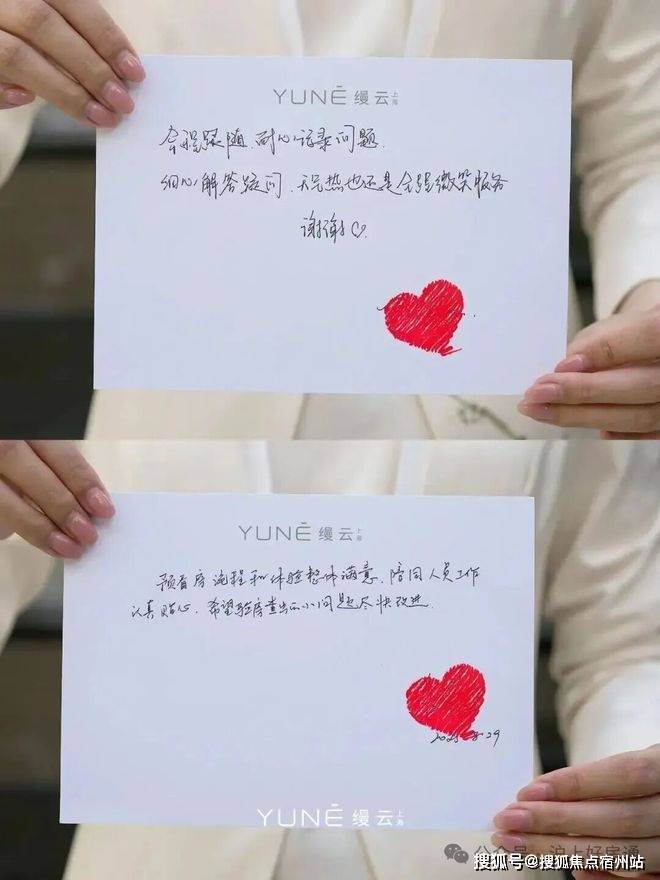 YUNĒ 缦云 上海
全程跟随、耐心记录问题.
细心解答疑问、天气热也还是全程微笑服务
谢谢♡.
YUNĒ 缦云 上海
预看房流程和体验整体满意、陪同人员工作
认真贴心. 希望验房查出的小问题尽快改进.
29
YUNĒ 缦云 上海
公众号 · 沪上好房通
搜狐号@搜狐焦点宿州站